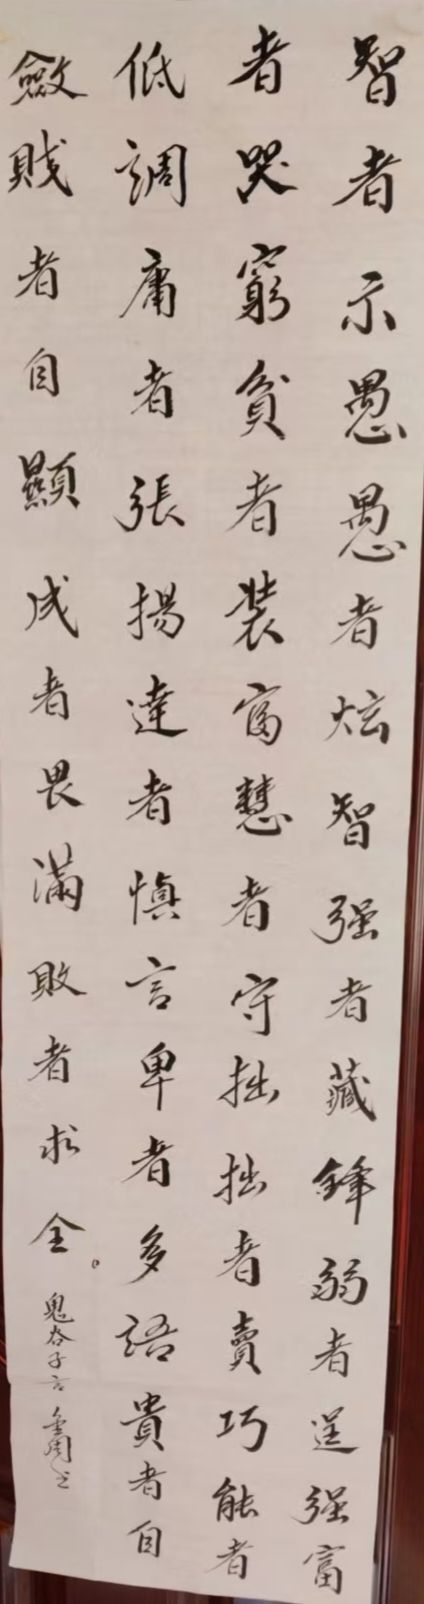 智者示愚愚者炫智强者藏鋒弱者逞强富
者哭窮貧者装富慧者守拙拙者賣巧能者
低調庸者張揚達者慎言卑者多語貴者自
斂賤者自顯成者畏滿敗者求全。
鬼谷子言